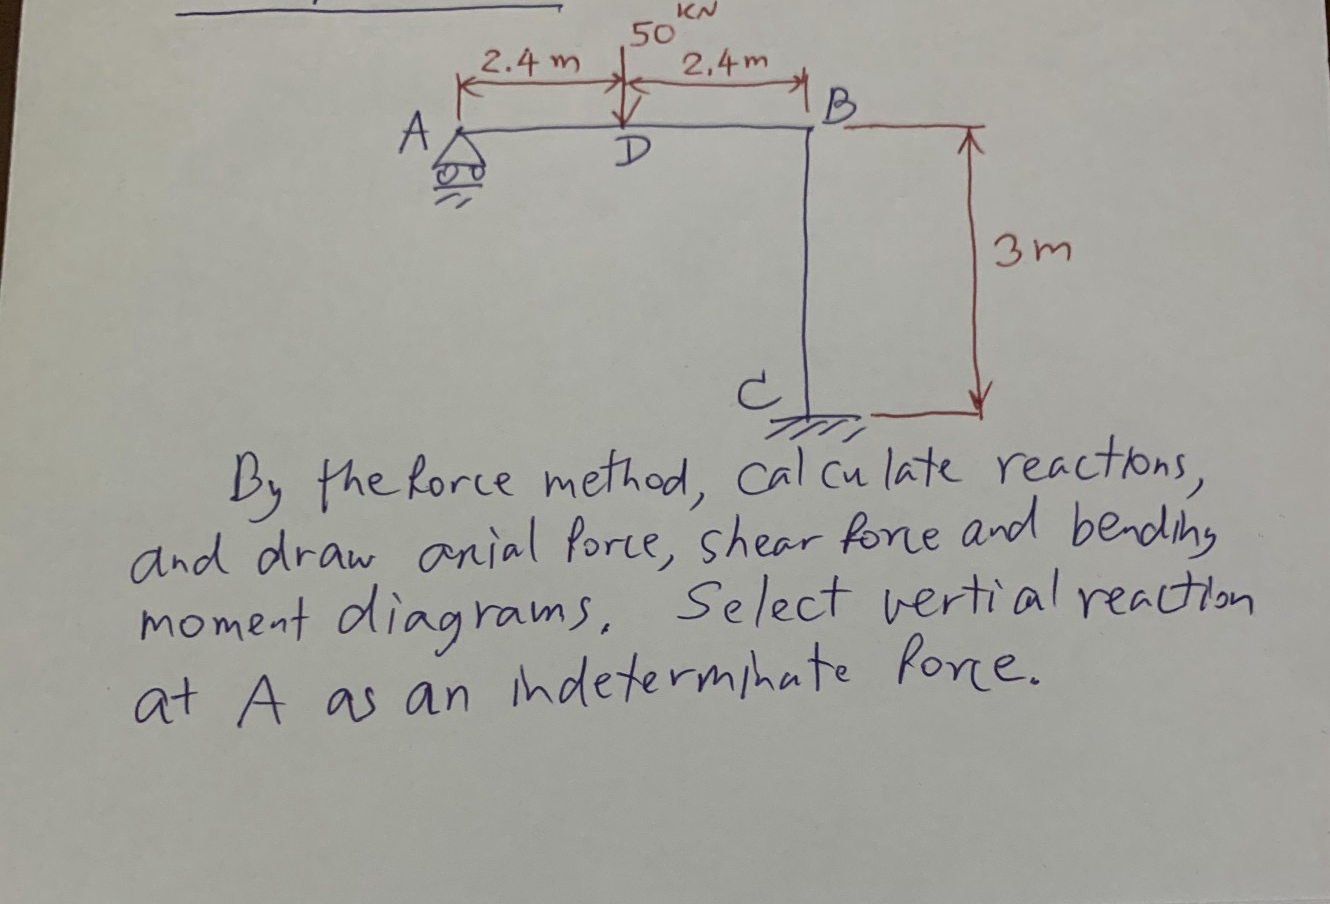 50 KN
2.4 m 2.4m
A D B
3m
C
By the force method, calculate reactions,
and draw axial force, shear force and bending
moment diagrams. Select vertial reaction
at A as an indeterminate force.